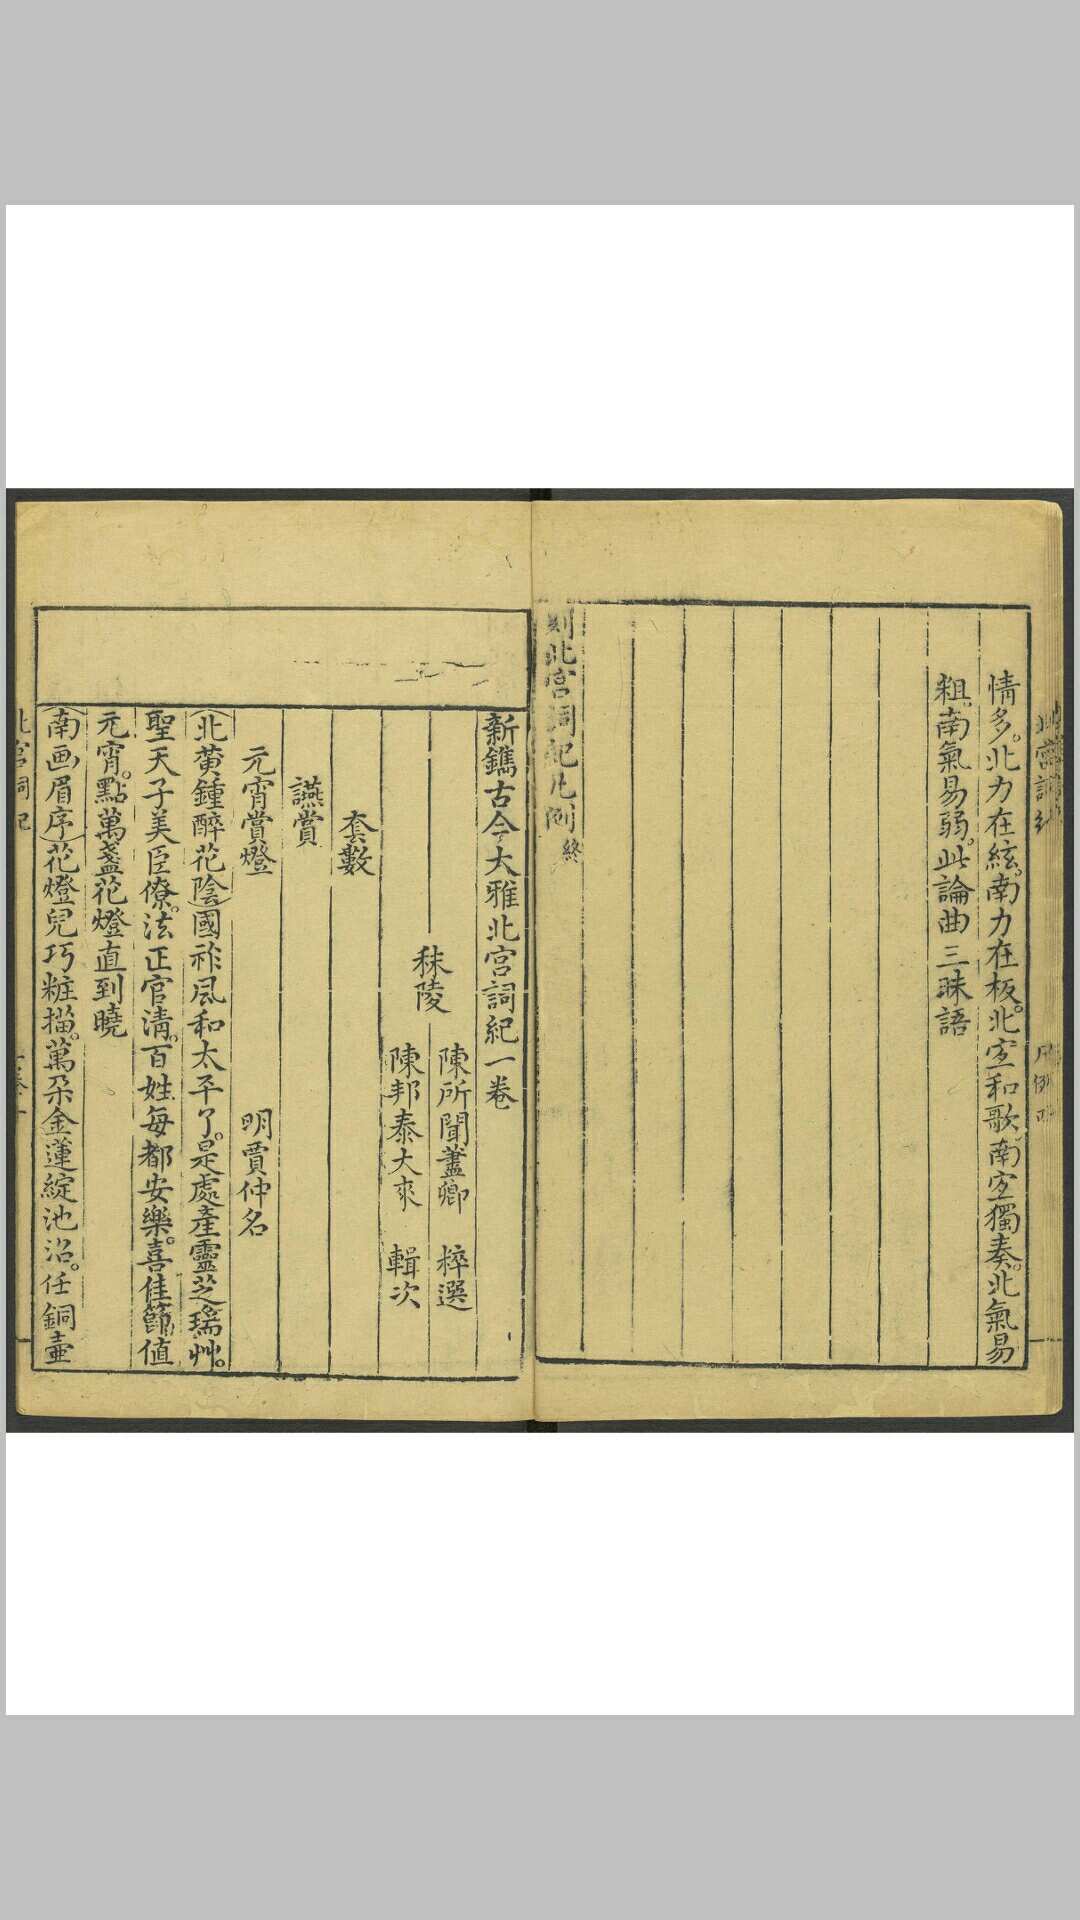 情多。北力在絃。南力在板。北宜和歌。南宜獨奏。北氣易
粗。南氣易弱。此論曲三昧語
刻北宮詞紀凡例終
新鐫古今大雅北宮詞紀一卷
秣陵
陳所聞藎卿 粹選
陳邦泰大來 輯次
套數
讌賞
元宵賞燈 明賈仲名
(北黄鍾醉花陰)國祚風和太平了。是處產靈芝瑞艸。
聖天子美臣僚。法正官清。百姓每都安樂。喜佳節值
元宵。點萬盞花燈直到曉
(南画眉序)花燈兒巧粧描。萬朶金蓮綻池沼。任銅壷
北宮詞紀